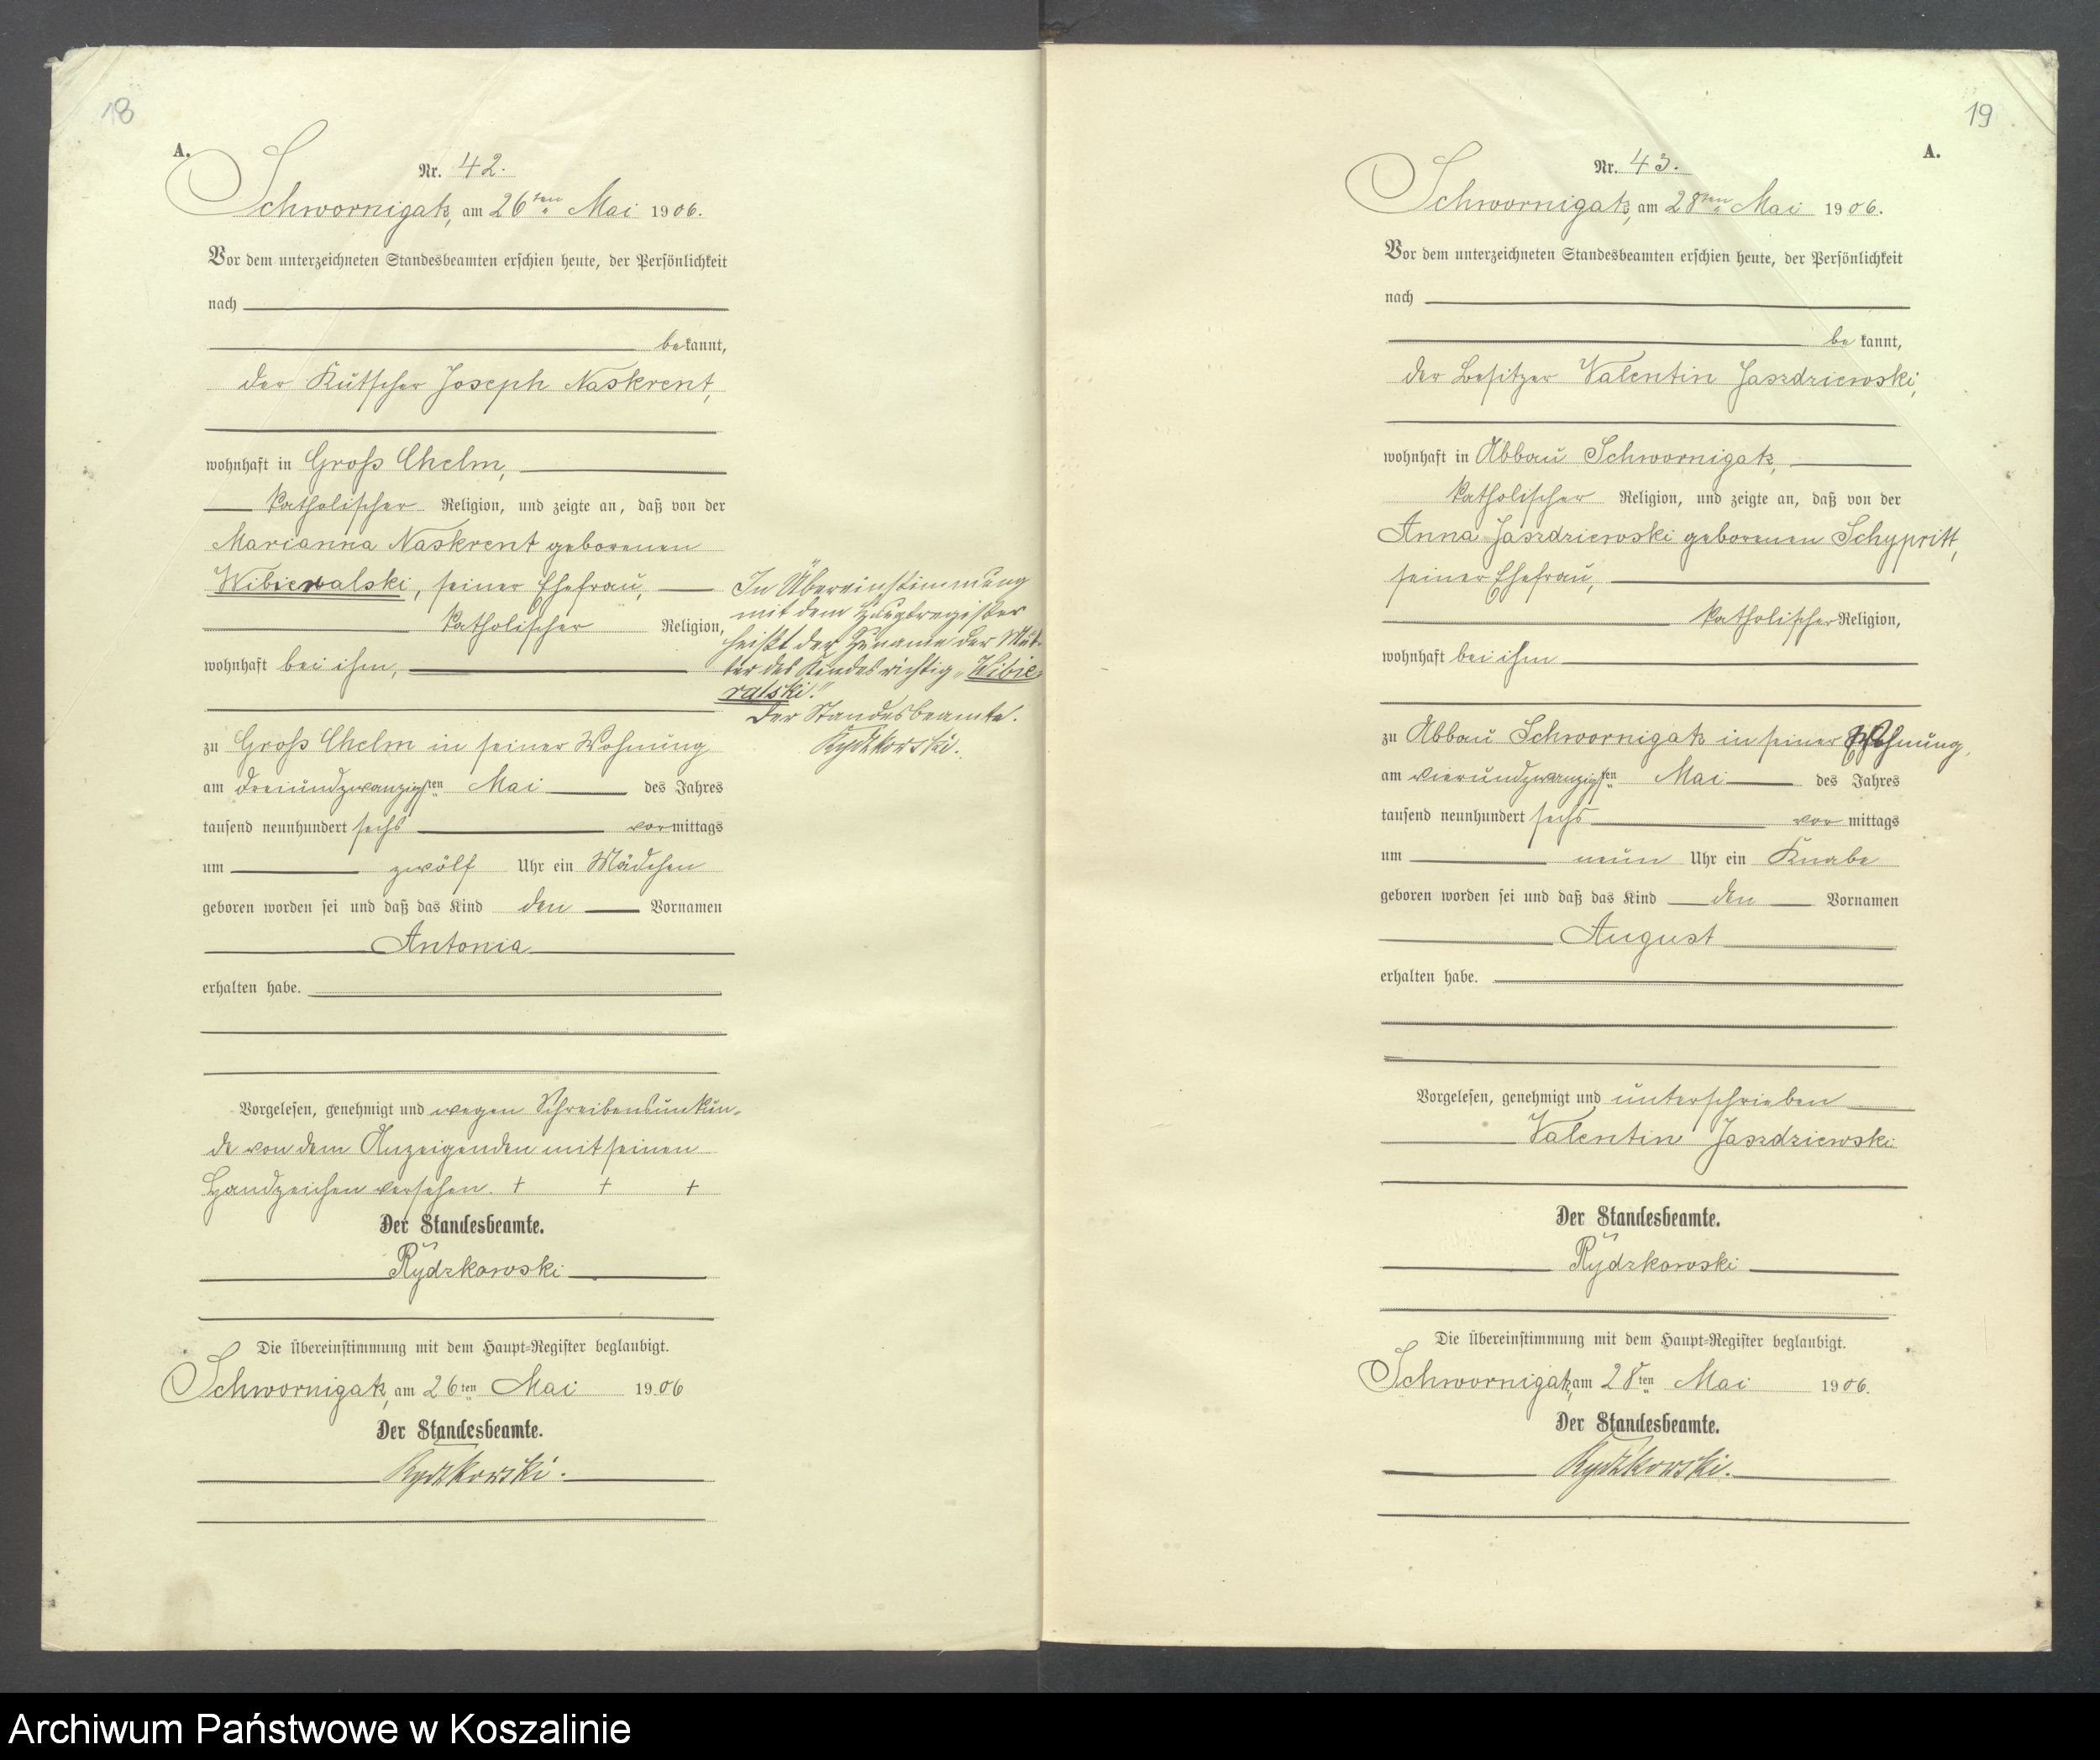 18
A.
Nr. 42.
Schwornigatz, am 26ten Mai 1906.
Vor dem unterzeichneten Standesbeamten erschien heute, der Persönlichkeit
nach
bekannt,
der Kutscher Joseph Naskrent,
wohnhaft in Groß Chelm,
katholischer Religion, und zeigte an, daß von der
Marianna Naskrent geborenen
Wibieralski, seiner Ehefrau,
katholischer Religion,
wohnhaft bei ihm,
zu Groß Chelm in seiner Wohnung
am dreiundzwanzigsten Mai des Jahres
tausend neunhundert sechs vormittags
um zwölf Uhr ein Mädchen
geboren worden sei und daß das Kind den Vornamen
Antonia
erhalten habe.
Vorgelesen, genehmigt und wegen Schreibensunkun-
de von dem Anzeigenden mit seinen
Handzeichen versehen. + + +
Der Standesbeamte.
Rydzkowski
Die Übereinstimmung mit dem Haupt-Register beglaubigt.
Schwornigatz, am 26ten Mai 1906
Der Standesbeamte.
Rydzkowski.
In Übereinstimmung
mit dem Hauptregister
heißt der Zuname der Mut-
ter des Kindes richtig „Wibie-
ralski."
Der Standesbeamte.
Rydzkowski.
19
A.
Nr. 43.
Schwornigatz, am 28ten Mai 1906.
Vor dem unterzeichneten Standesbeamten erschien heute, der Persönlichkeit
nach
bekannt,
der Besitzer Valentin Jaszdziewski,
wohnhaft in Abbau Schwornigatz,
katholischer Religion, und zeigte an, daß von der
Anna Jaszdziewski geborenen Schypritt,
seiner Ehefrau,
katholischer Religion,
wohnhaft bei ihm
zu Abbau Schwornigatz in seiner Wohnung,
am vierundzwanzigsten Mai des Jahres
tausend neunhundert sechs vormittags
um neun Uhr ein Knabe
geboren worden sei und daß das Kind den Vornamen
August
erhalten habe.
Vorgelesen, genehmigt und unterschrieben
Valentin Jaszdziewski
Der Standesbeamte.
Rydzkowski
Die Übereinstimmung mit dem Haupt-Register beglaubigt.
Schwornigatz, am 28ten Mai 1906.
Der Standesbeamte.
Rydzkowski.
Archiwum Państwowe w Koszalinie